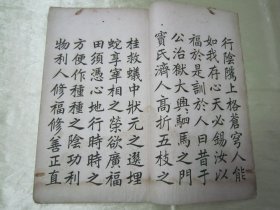 行陰隲上格蒼穹人能
如我存心天必錫汝以
福於是訓於人曰昔于
公治獄大興駟馬之門
竇氏濟人高折五枝之
桂救蟻中狀元之選埋
蛇享宰相之榮欲廣福
田須憑心地行時時之
方便作種種之陰功利
物利人修福修善正直